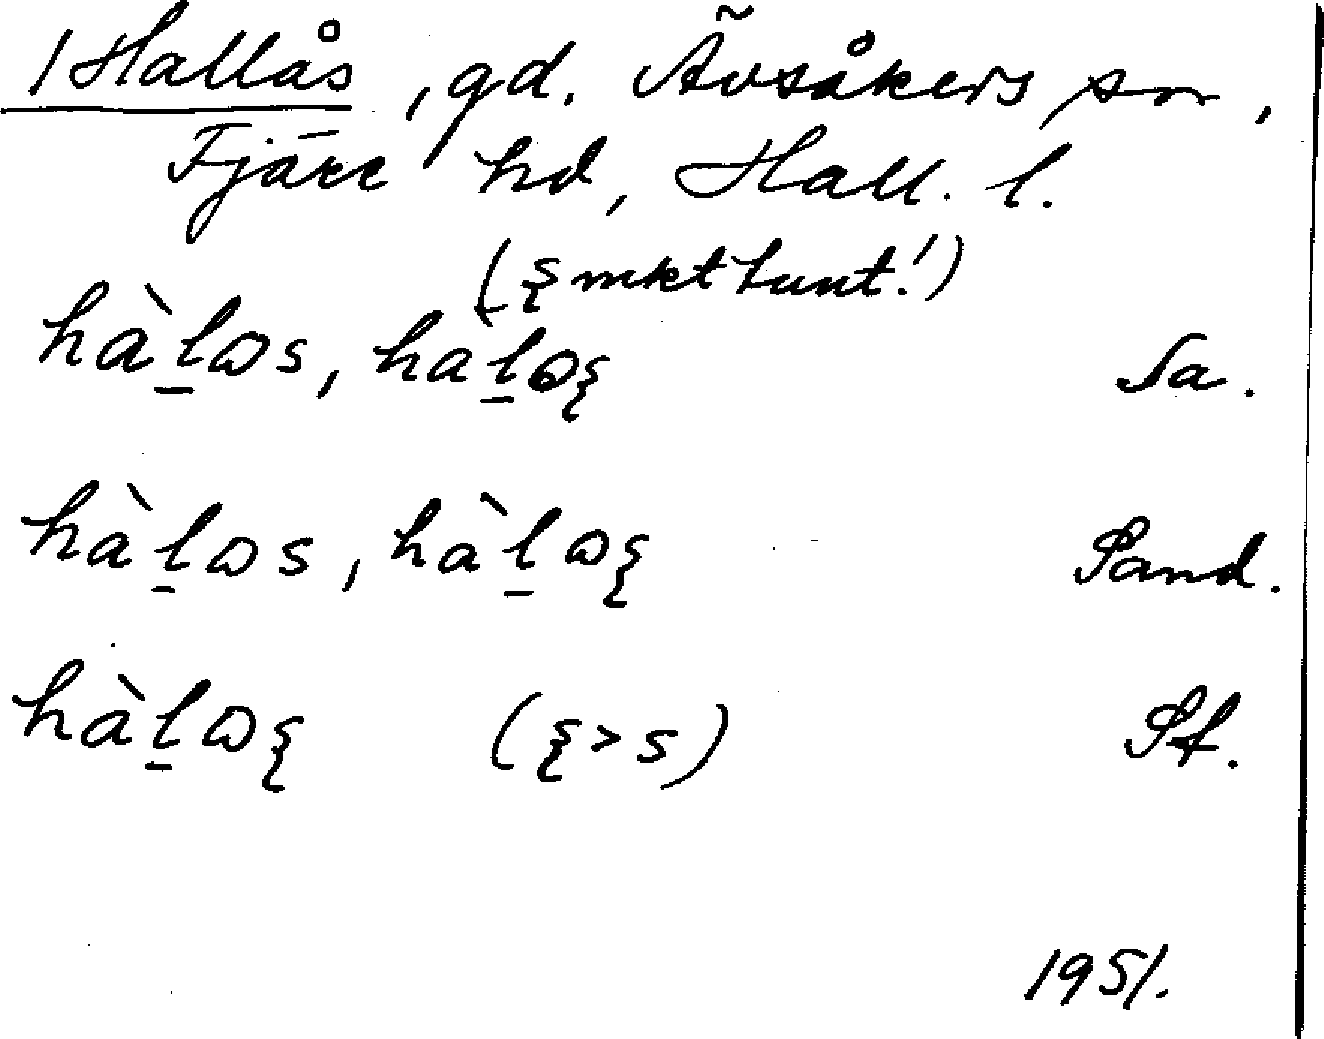 1 Hallås, gd. Ävsåkers sn,
Fjäre hd, Hall. l.
(ꞩ mkt tunt!)
hàl̠ɷs, hàl̠ɷꞩ Sa.
hàl̠ɷs, hàl̠ɷꞩ Sand.
hàl̠ɷꞩ (ꞩ>s) Sf.
1951.